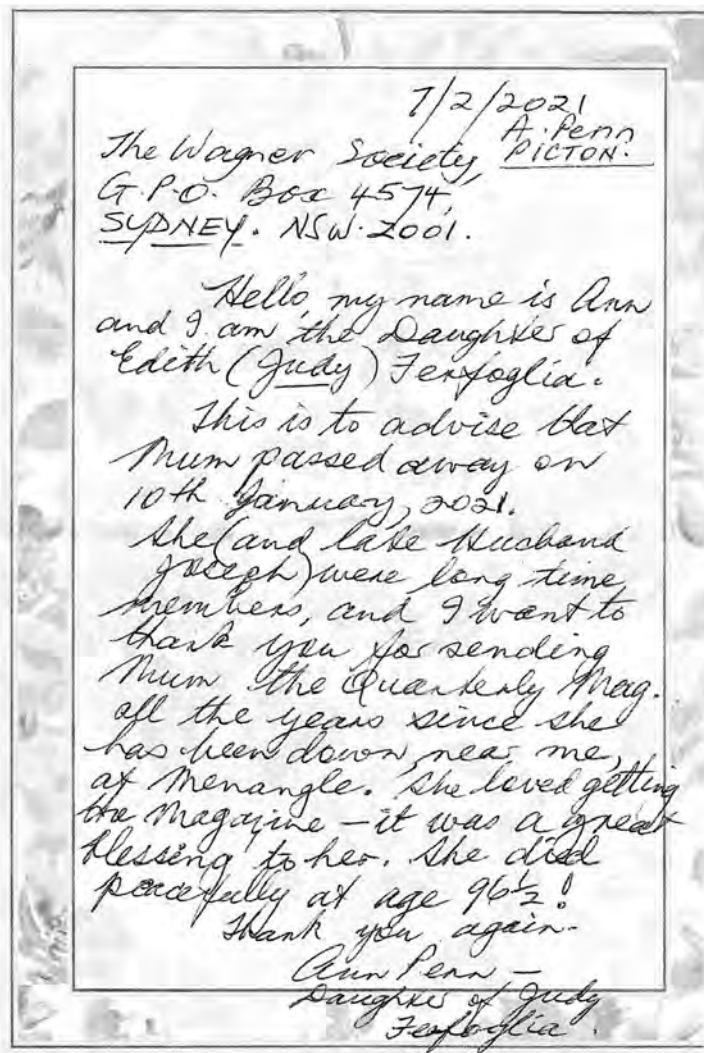 7/2/2021
A. Penn
The Wagner Society, PICTON.
G.P.O. Box 4574,
SYDNEY. NSW. 2001.
Hello, my name is Ann
and I am the Daughter of
Edith (Judy) Ferfoglia.
This is to advise that
Mum passed away on
10th January, 2021.
She (and late Husband
Joseph) were long time
members, and I want to
thank you for sending
Mum the Quarterly Mag.
all the years since she
has been down near me,
at Menangle. She loved getting
the Magazine – it was a great
blessing to her. She died
peacefully at age 96½!
Thank you again.
Ann Penn –
Daughter of Judy
Ferfoglia.